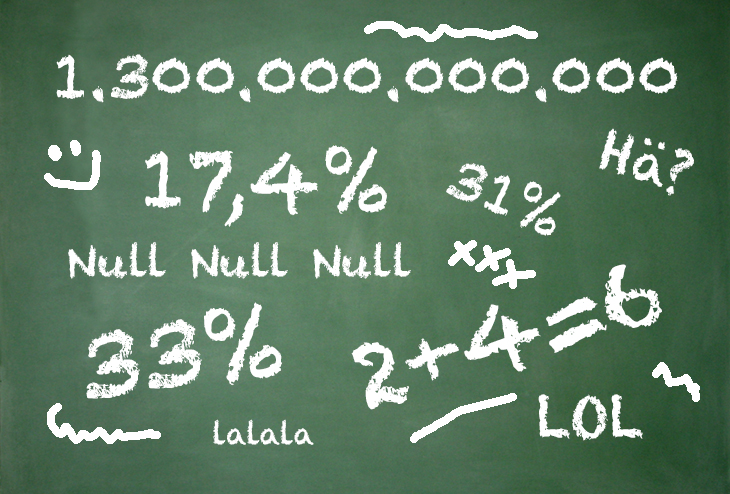 1.300.000.000.000
17,4%
31%
Hä?
Null Null Null
xxx
33%
2+4=6
lalala
LOL